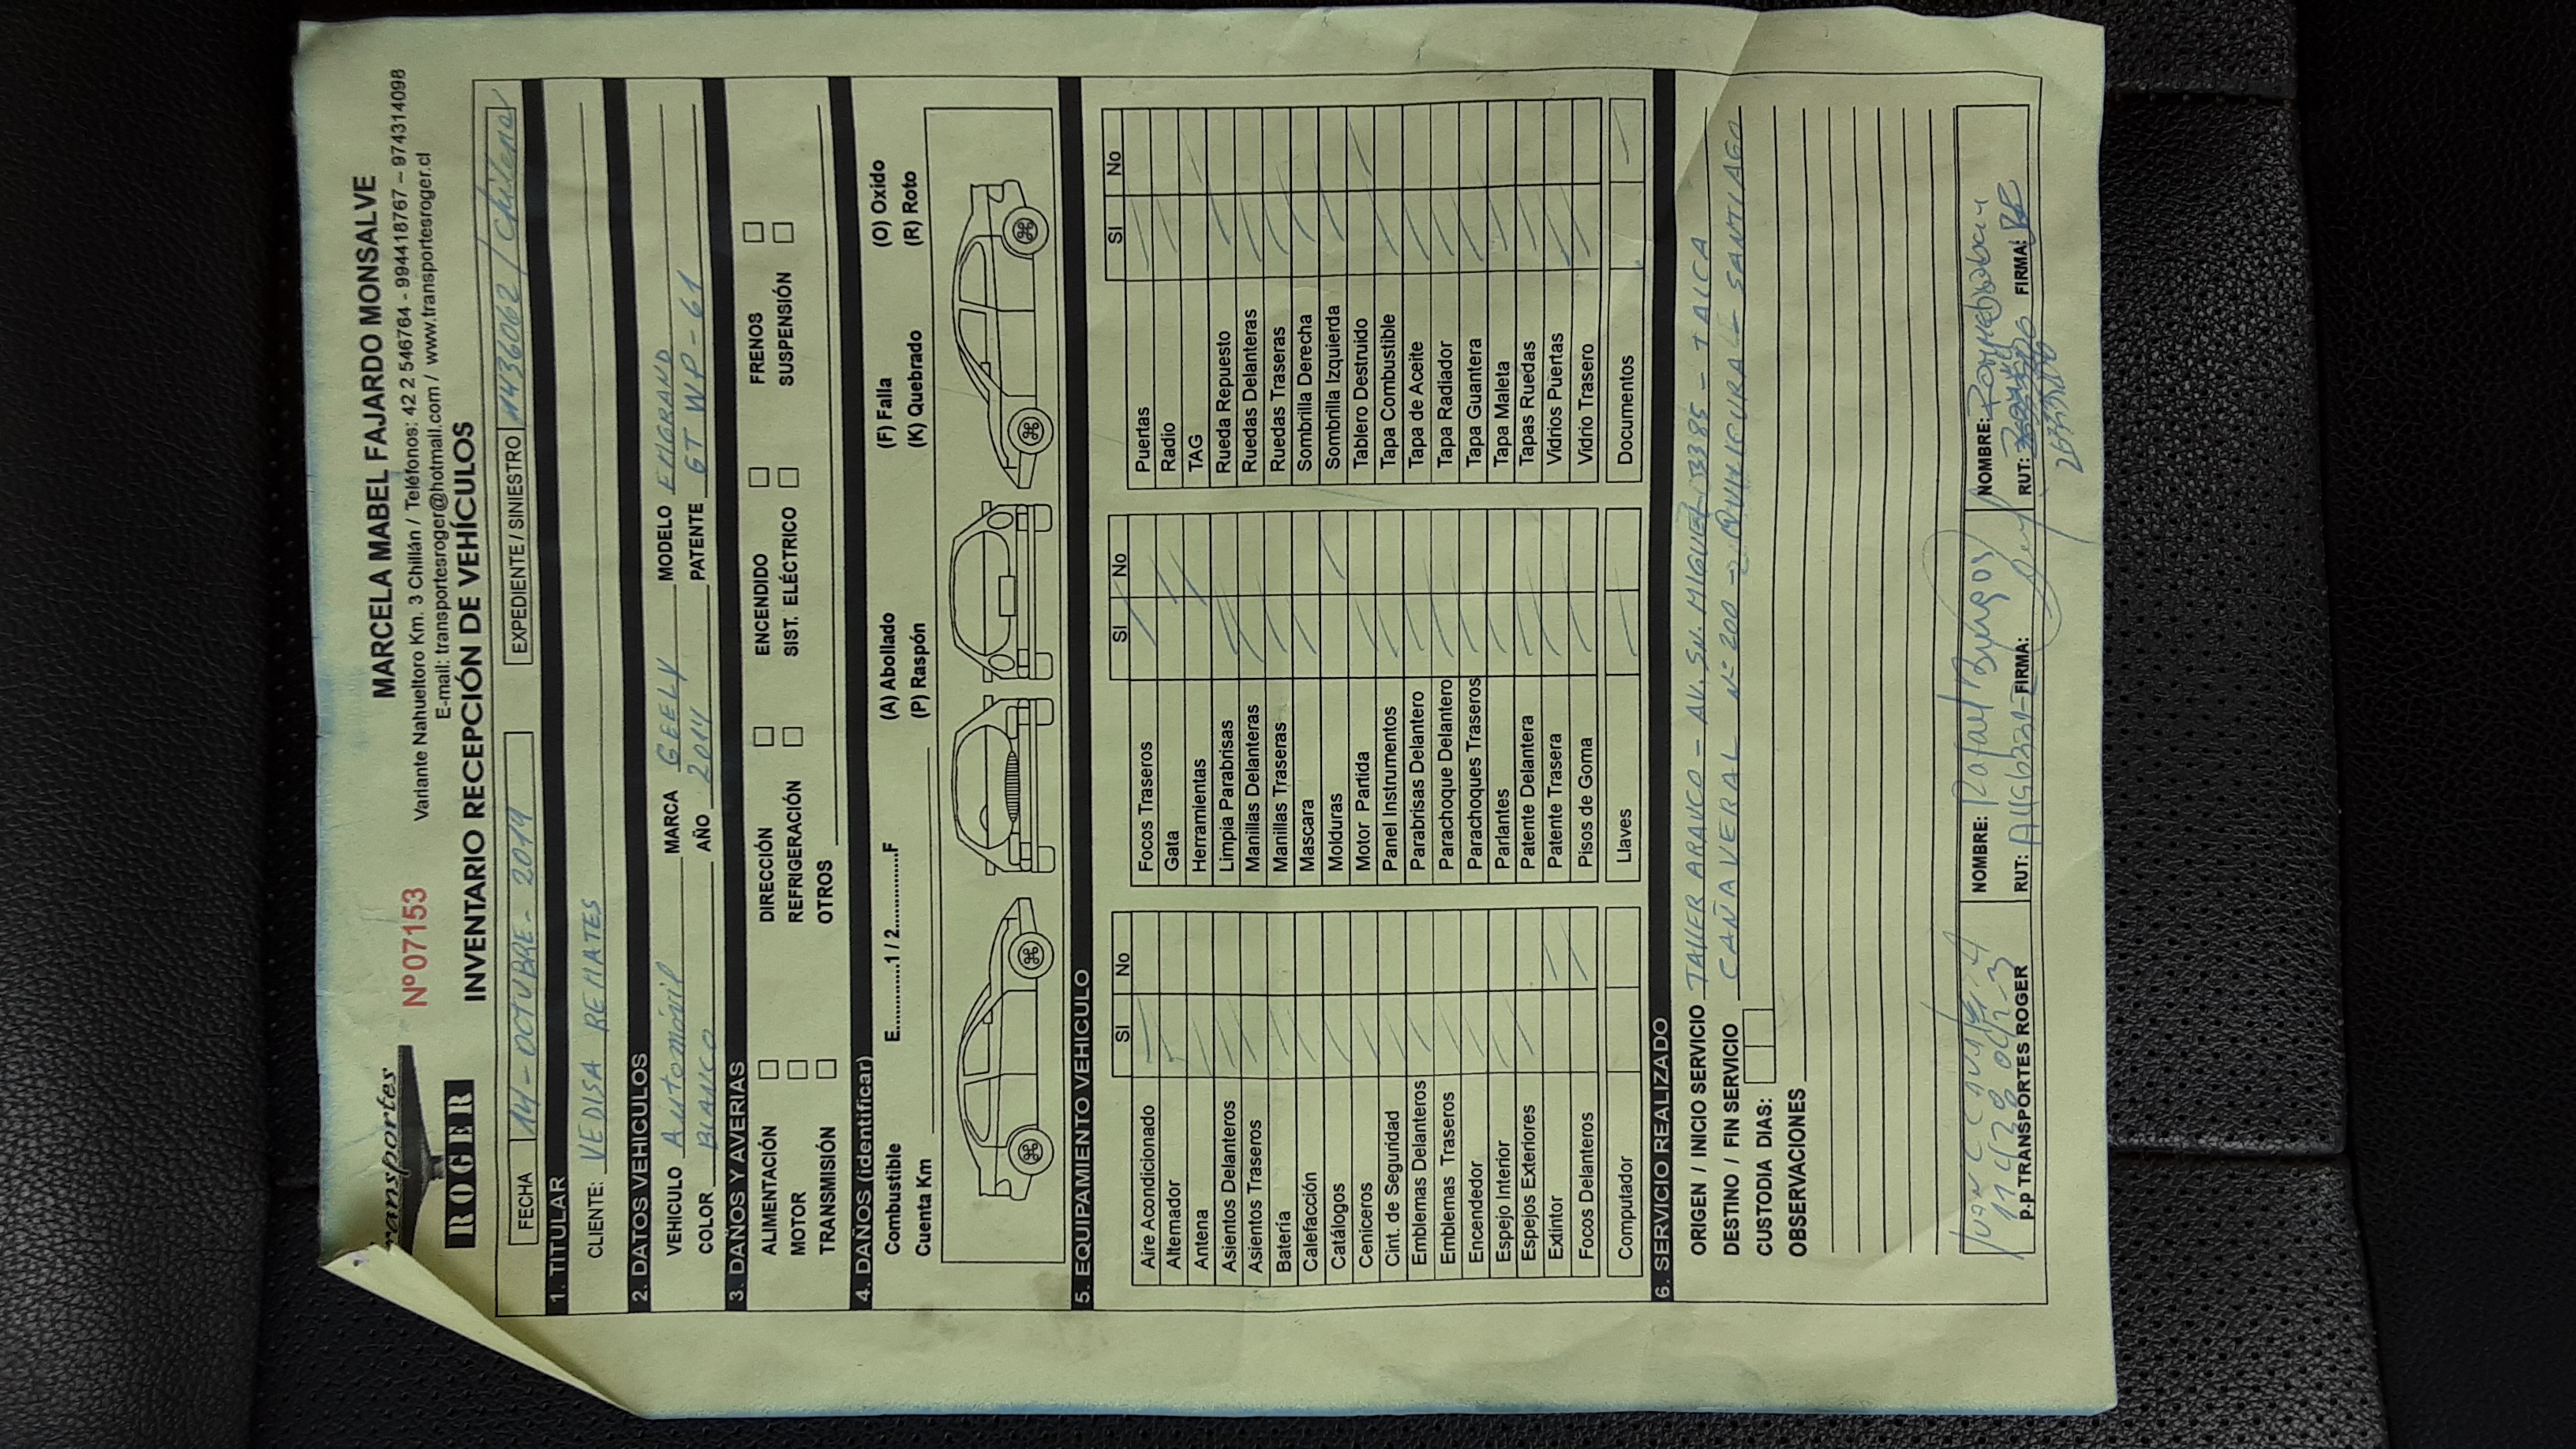 ROGER
Nº 07153
MARCELA MABEL FAJARDO MONSALVE
Variante Nahueltoro Km. 3 Chillán / Teléfonos: 42 2 546764 - 994418767 – 974314098
E-mail: transportesroger@hotmail.com / www.transportesroger.cl
INVENTARIO RECEPCIÓN DE VEHÍCULOS
FECHA 14 - OCTUBRE - 2019 EXPEDIENTE / SINIESTRO 1436062 / Chilena
1. TITULAR
CLIENTE: VEDISA REMATES
2. DATOS VEHICULOS
VEHICULO Automóvil MARCA GEELY MODELO EMGRAND
COLOR BLANCO AÑO 2014 PATENTE GT WP - 61
3. DAÑOS Y AVERIAS
ALIMENTACIÓN DIRECCIÓN ENCENDIDO FRENOS
MOTOR REFRIGERACIÓN SIST. ELÉCTRICO SUSPENSIÓN
TRANSMISIÓN OTROS
4. DAÑOS (identificar)
Combustible E.............1 / 2..............F (A) Abollado (F) Falla (O) Oxido
Cuenta Km (P) Raspón (K) Quebrado (R) Roto
5. EQUIPAMIENTO VEHICULO
SI No SI No SI No
Aire Acondicionado Focos Traseros Puertas
Alternador Gata Radio
Antena Herramientas TAG
Asientos Delanteros Limpia Parabrisas Rueda Repuesto
Asientos Traseros Manillas Delanteras Ruedas Delanteras
Batería Manillas Traseras Ruedas Traseras
Calefacción Mascara Sombrilla Derecha
Catálogos Molduras Sombrilla Izquierda
Ceniceros Motor Partida Tablero Destruido
Cint. de Seguridad Panel Instrumentos Tapa Combustible
Emblemas Delanteros Parabrisas Delantero Tapa de Aceite
Emblemas Traseros Parachoque Delantero Tapa Radiador
Encendedor Parachoques Traseros Tapa Guantera
Espejo Interior Parlantes Tapa Maleta
Espejos Exteriores Patente Delantera Tapas Ruedas
Extintor Patente Trasera Vidrios Puertas
Focos Delanteros Pisos de Goma Vidrio Trasero
Computador Llaves Documentos
6. SERVICIO REALIZADO
ORIGEN / INICIO SERVICIO TALLER ARAUCO - AV. SN. MIGUEL 3385 - TALCA
DESTINO / FIN SERVICIO CAÑAVERAL Nº 200 - QUILICURA - SANTIAGO
CUSTODIA DIAS:
OBSERVACIONES
NOMBRE: Rafael Burgos NOMBRE:
p.p TRANSPORTES ROGER RUT: FIRMA: RUT: FIRMA: